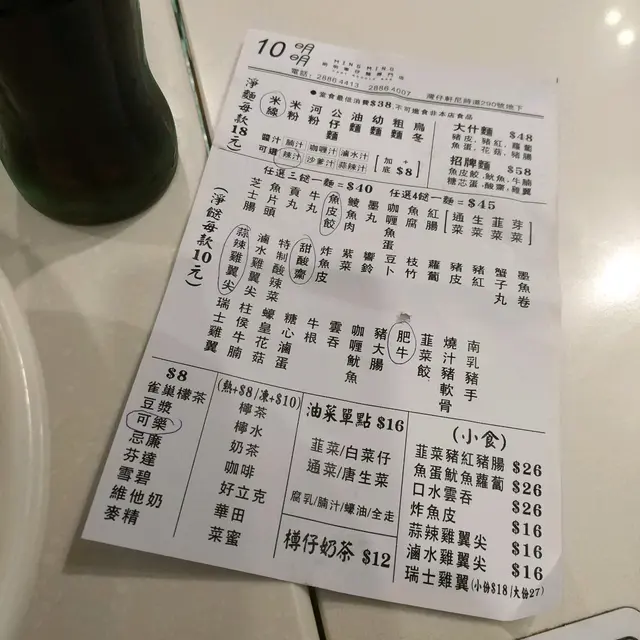 10 明明
MING MING
電話：2886 4413　2886 4007　灣仔軒尼詩道290號地下
●堂食最低消費$38,不可進食非本店食品
淨麵每款18元
米線　米粉　河粉　公仔麵　油麵　幼麵　粗麵　烏冬
醬汁可選　腩汁　咖喱汁　滷水汁
辣汁　沙爹汁　蒜辣汁
加底 + $8
大什麵 $48
豬皮、豬紅、蘿蔔
魚蛋、花菇、豬腸
招牌麵 $58
魚皮餃、魷魚、牛腩
糖芯蛋、酸齋、雞翼
任選三餸一麵=$40　任選4餸一麵=$45
(淨餸每款10元)
芝士腸　魚片頭　貢丸　牛丸　魚皮餃　鯪魚肉　墨丸　咖喱魚蛋　魚腐　紅腸　通菜　生菜　韮菜　芽菜
蒜辣雞翼尖　滷水雞翼尖　特制酸辣菜　甜酸齋　炸魚皮　紫菜　響鈴　豆卜　枝竹　蘿蔔　豬皮　豬紅　蟹子丸　墨魚卷
瑞士雞翼　柱侯牛腩　蠔皇花菇　糖心滷蛋　牛根　雲吞　咖喱魷魚　豬大腸　肥牛　韮菜餃　燒汁豬軟骨　南乳豬手
$8
雀巢檬茶
豆漿
可樂
忌廉
芬達
雪碧
維他奶
麥精
(熱+$8/凍+$10)
檸茶
檸水
奶茶
咖啡
好立克
華田
菜蜜
油菜單點 $16
韮菜/白菜仔
通菜/唐生菜
腐乳/腩汁/蠔油/全走
樽仔奶茶 $12
(小食)
韮菜豬紅豬腸 $26
魚蛋魷魚蘿蔔 $26
口水雲吞 $26
炸魚皮 $16
蒜辣雞翼尖 $16
滷水雞翼尖 $16
瑞士雞翼(小份$18/大份27)